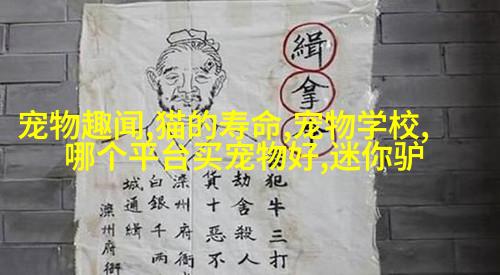 宠物趣闻,猫的寿命,宠物学校,
哪个平台买宠物好,迷你驴
緝拿
犯牛三打
劫舍殺人
貨十惡不
滦州府衙
白銀千两
城通緝
滦州府衙